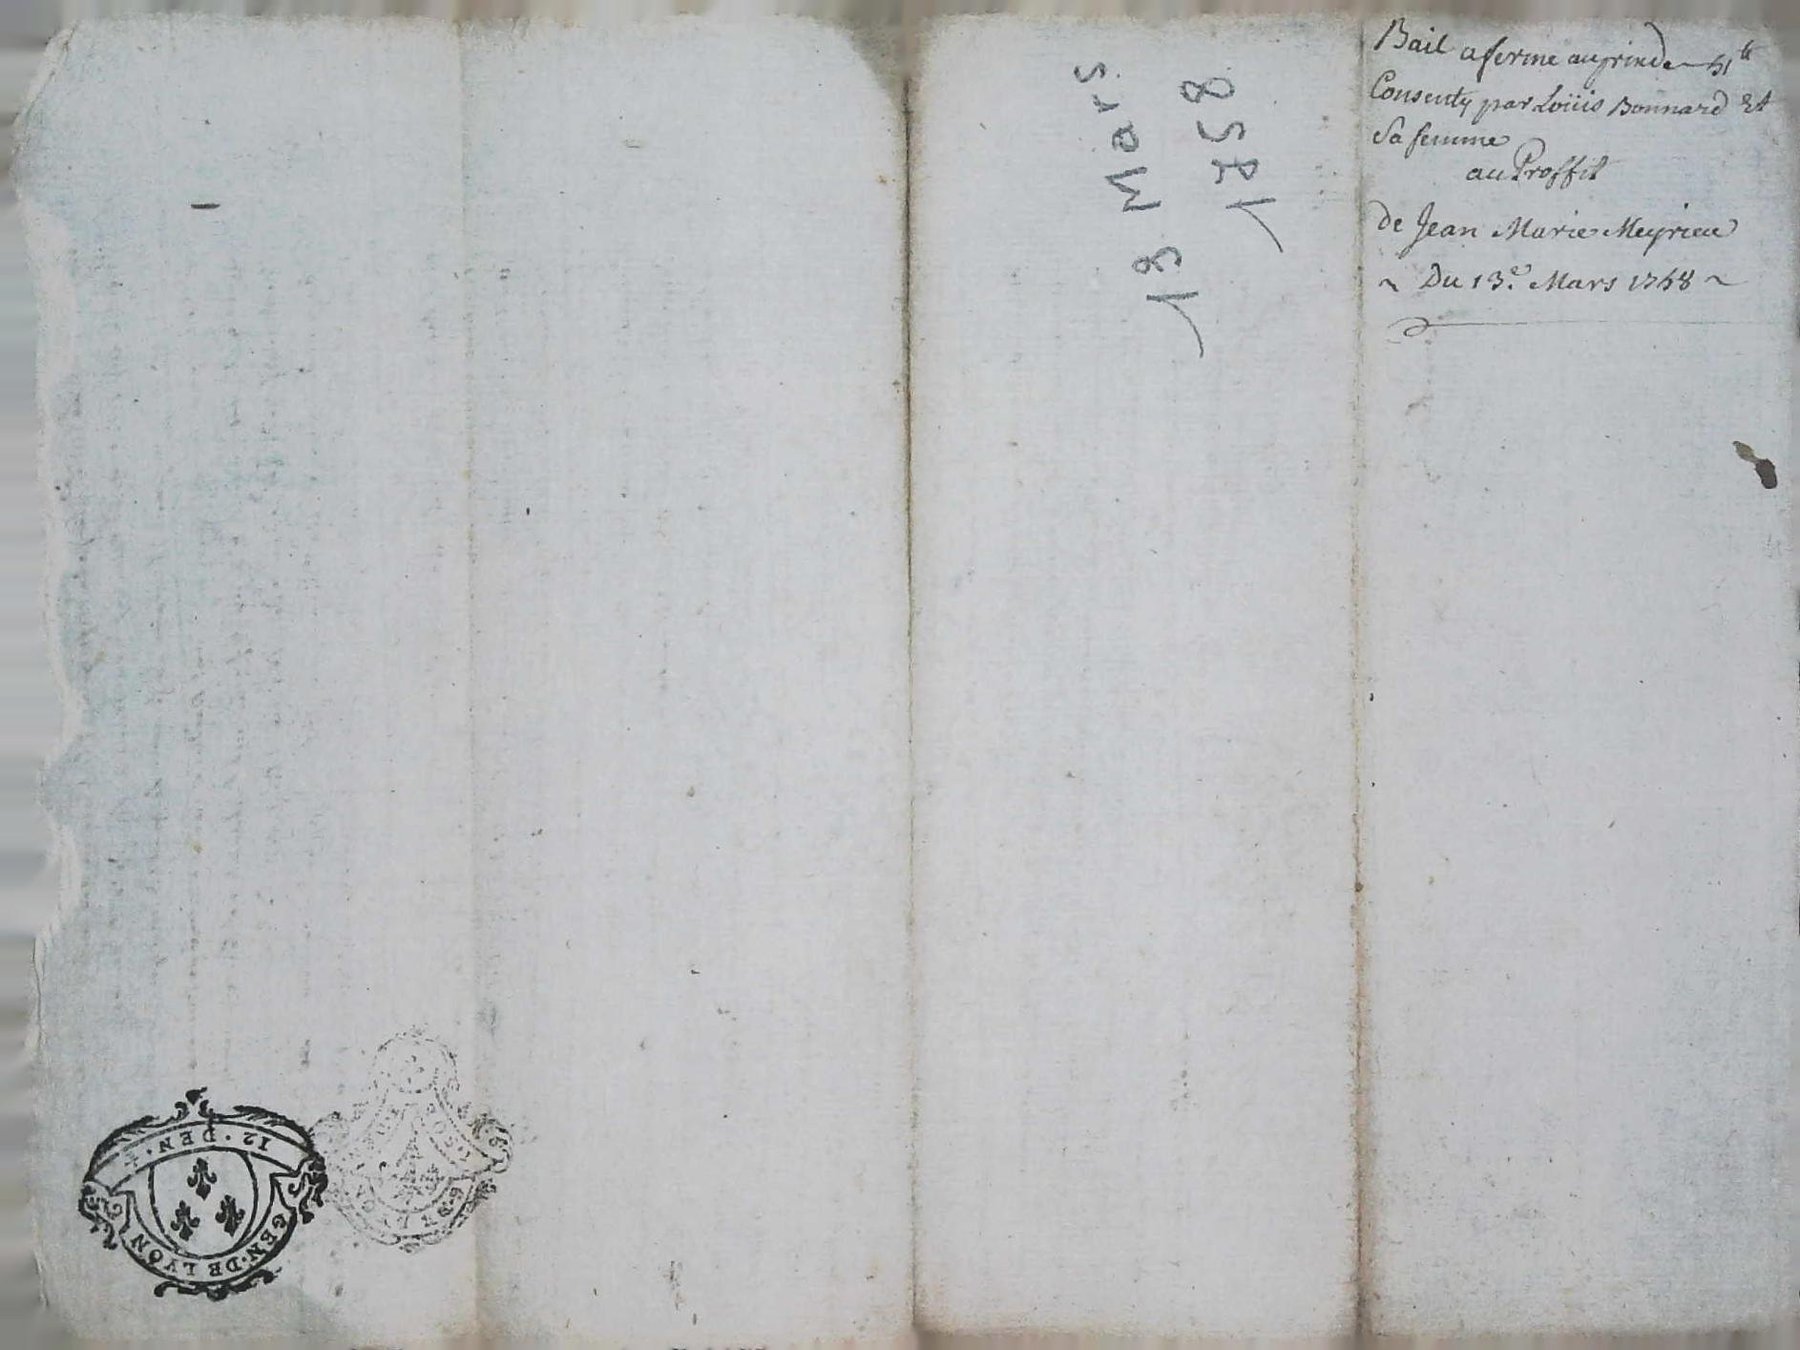 Bail a ferme au prix de 51ᵗᵗ
Consenty par Loüis Bonnard Et
Sa femme
au Proffit
de Jean Marie Meyrieu
~ Du 13.e Mars 1758 ~
1758
18 Mars
12 · DEN ·
GEN · DE LYON